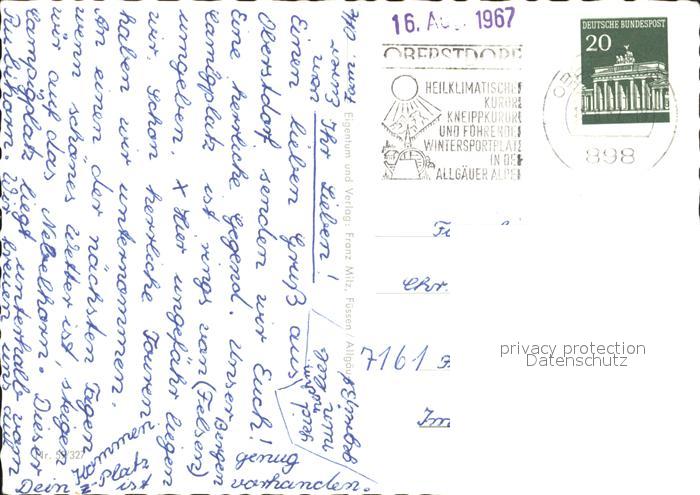 16. AUG. 1967
OBERSTDORF
HEILKLIMATISCHER
KURORT
KNEIPPKURORT
UND FÜHRENDER
WINTERSPORTPLATZ
IN DEN
ALLGÄUER ALPEN
DEUTSCHE BUNDESPOST
20
898
Ihr Lieben!
Einen lieben Gruß aus
Oberstdorf senden wir Euch!
Eine herrliche Gegend. Unser
Campplatz ist rings von Bergen
(Felsen)
umgeben. x Hier ungefähr liegen
wir. Schon herrliche Touren
haben wir unternommen.
An einen der nächsten Tagen,
wenn schönes Wetter ist, steigen
wir auf das Nebelhorn. Dieser
Campplatz liegt unterhalb vom
Wir freuen uns
Dein Kommen
Platz ist
genug
vorhanden.
Eigentum und Verlag: Franz Milz, Füssen / Allgäu
Chr.
7161
privacy protection
Datenschutz